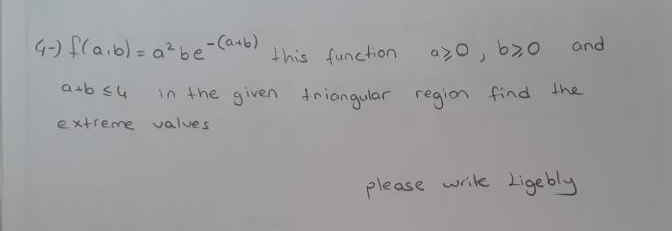 4-) f(a,b) = a²be⁻⁽ᵃ⁺ᵇ⁾ this function a≥0, b≥0 and
a+b ≤4 in the given triangular region find the
extreme values
please write Ligebly